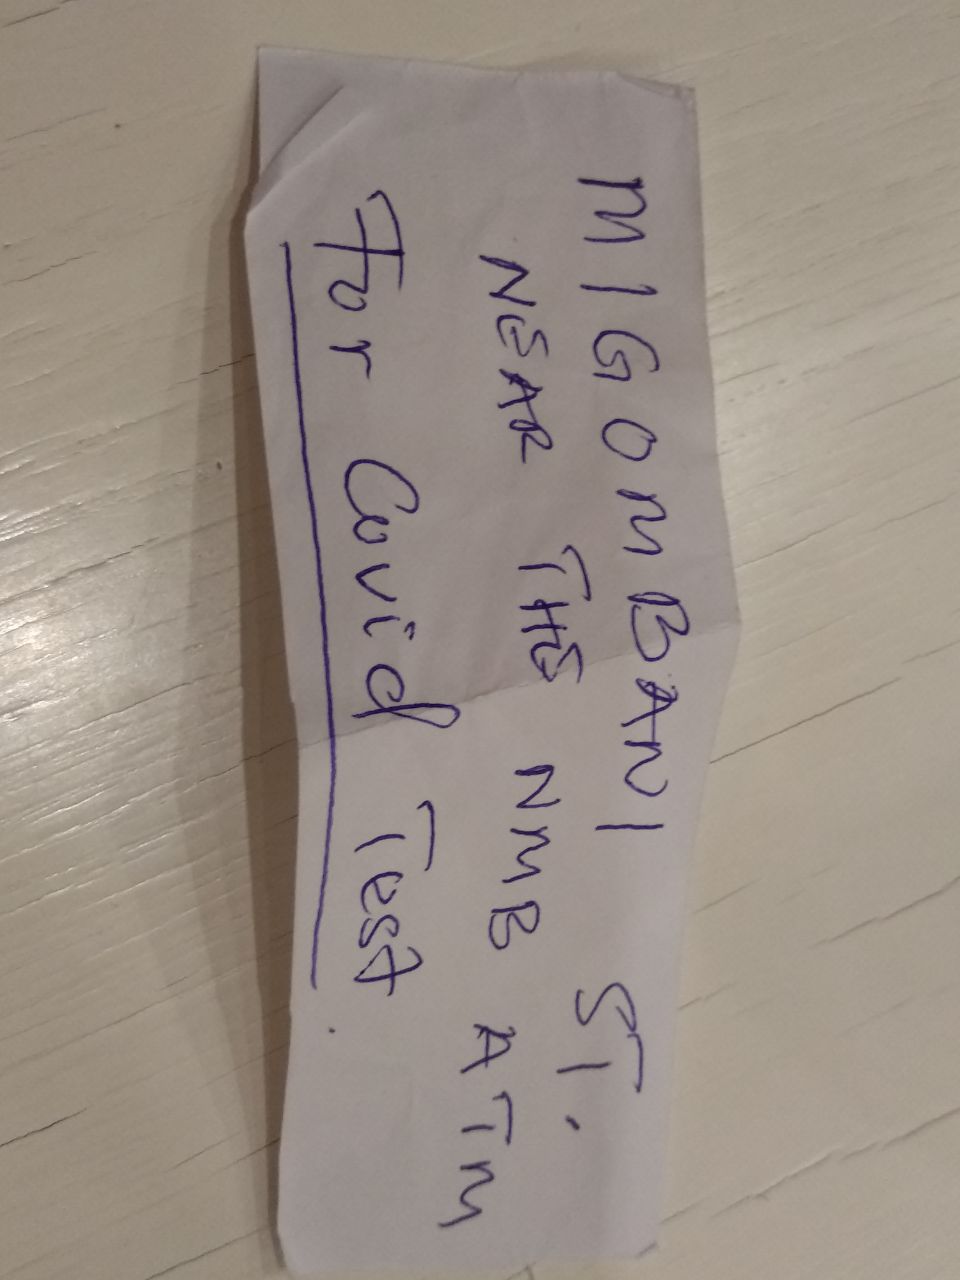 MIGOMBANI ST.
NEAR THE NMB ATM
For Covid Test.